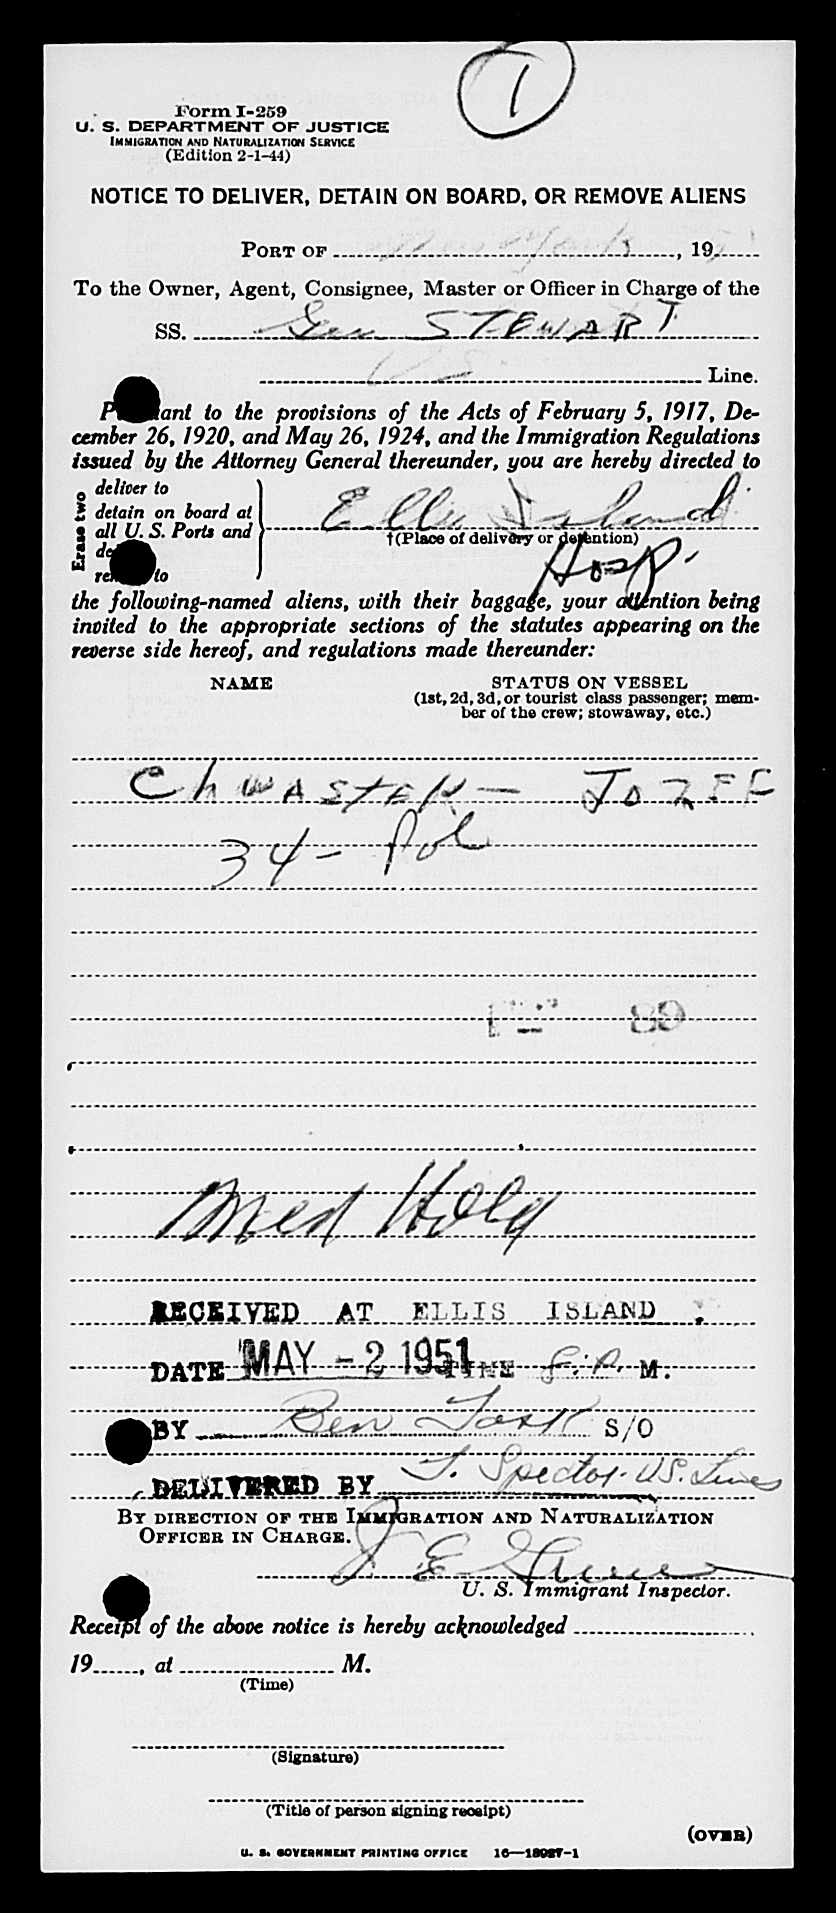 1
Form I-259
U. S. DEPARTMENT OF JUSTICE
IMMIGRATION AND NATURALIZATION SERVICE
(Edition 2-1-44)
NOTICE TO DELIVER, DETAIN ON BOARD, OR REMOVE ALIENS
PORT OF New York, 19
To the Owner, Agent, Consignee, Master or Officer in Charge of the
SS. Gen STEWART
US Line.
P ant to the provisions of the Acts of February 5, 1917, De-
cember 26, 1920, and May 26, 1924, and the Immigration Regulations
issued by the Attorney General thereunder, you are hereby directed to
Erase two
deliver to
detain on board at
all U. S. Ports and
de
re to
Ellis Island
†(Place of delivery or detention)
Hosp.
the following-named aliens, with their baggage, your attention being
invited to the appropriate sections of the statutes appearing on the
reverse side hereof, and regulations made thereunder:
NAME STATUS ON VESSEL
(1st, 2d, 3d, or tourist class passenger; mem-
ber of the crew; stowaway, etc.)
ChWASTEK - JOZEF
34 - Pol
89
Med Hold
RECEIVED AT ELLIS ISLAND.
DATE MAY - 2 1951 TIME 8: P. M.
BY Ben S/O
DELIVERED BY T. Spector. US. Lines
BY DIRECTION OF THE IMMIGRATION AND NATURALIZATION
OFFICER IN CHARGE.
J. E.
U. S. Immigrant Inspector.
Receipt of the above notice is hereby acknowledged
19, at M.
(Time)
(Signature)
(Title of person signing receipt)
(OVER)
U. S. GOVERNMENT PRINTING OFFICE 16—18927-1